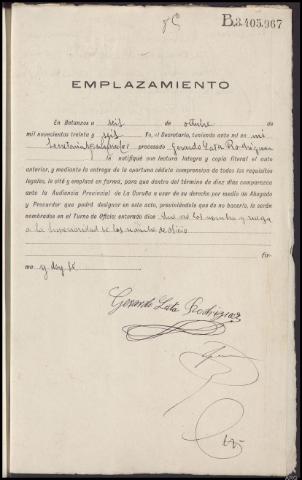 B.3.405.967
EMPLAZAMIENTO
En Betanzos a seis de octubre de
mil novecientos treinta y seis Yo, el Secretario, teniendo ante mí en mi
Secretaría al procesado Gerardo Lata Rodríguez
le notifiqué con lectura íntegra y copia literal el auto
anterior, y mediante la entrega de la oportuna cédula comprensiva de todos los requisitos
legales, le cité y emplacé en forma, para que dentro del término de diez días comparezca
ante la Audiencia Provincial de La Coruña a usar de su derecho por medio de Abogado
y Procurador que podrá designar en este acto, previniéndole que de no hacerlo, le serán
nombrados en el Turno de Oficio; enterado dice que no los nombra y ruega
a la Superioridad se los nombre de oficio
fir-
ma y doy fe
Gerardo Lata Rodriguez